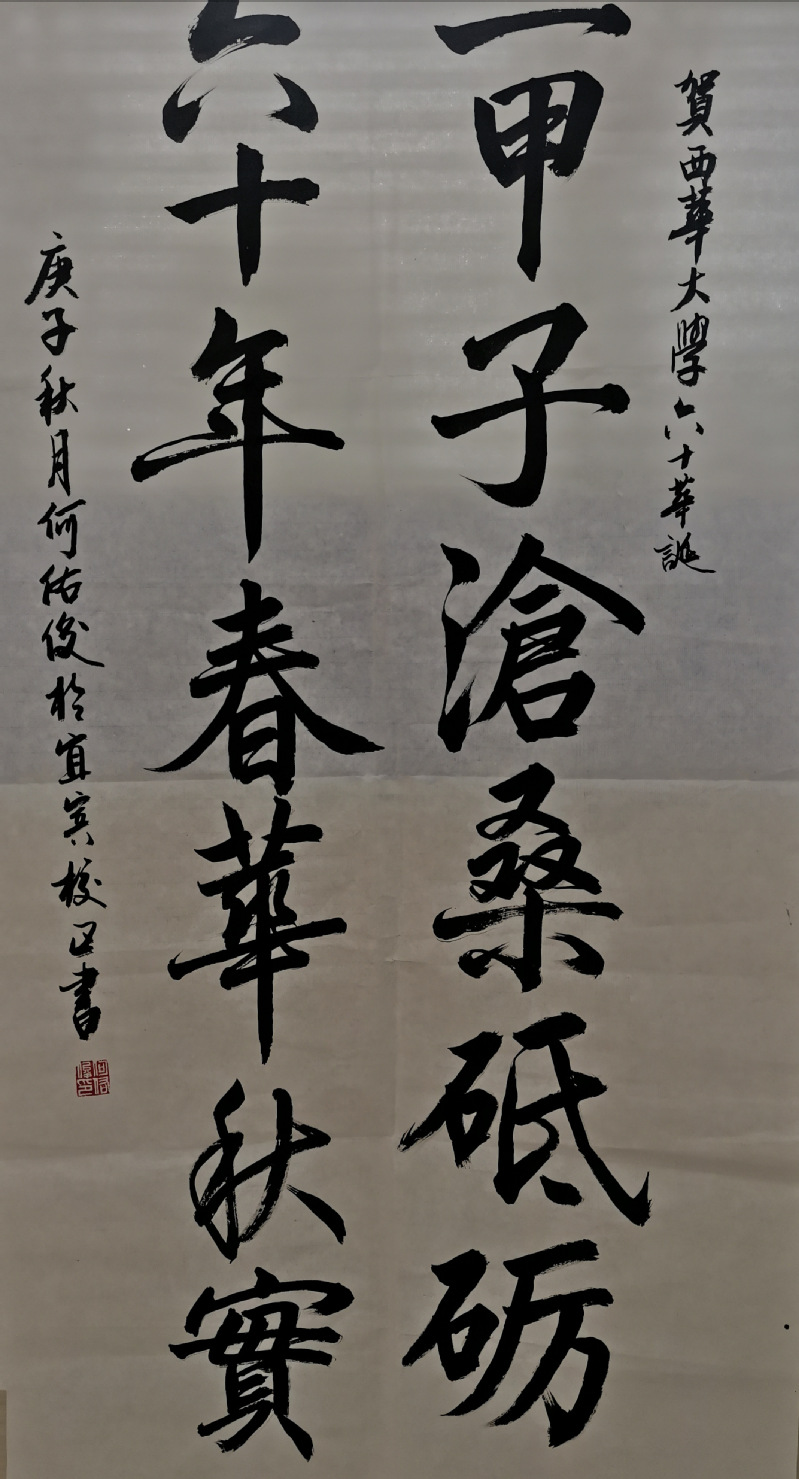 賀西華大學六十華誕
一甲子滄桑砥砺
六十年春華秋實
庚子秋月何佑俊於宜宾校区書